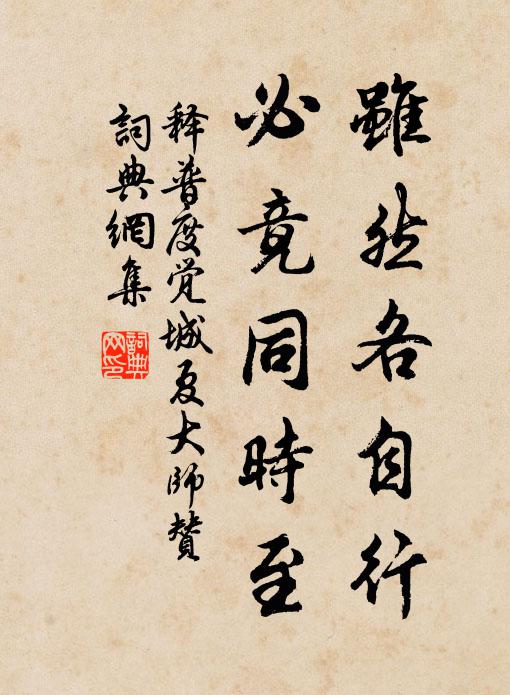 雖然各自行
必竟同時至
释普度觉城夏大师赞
詞典網集
詞典
网印